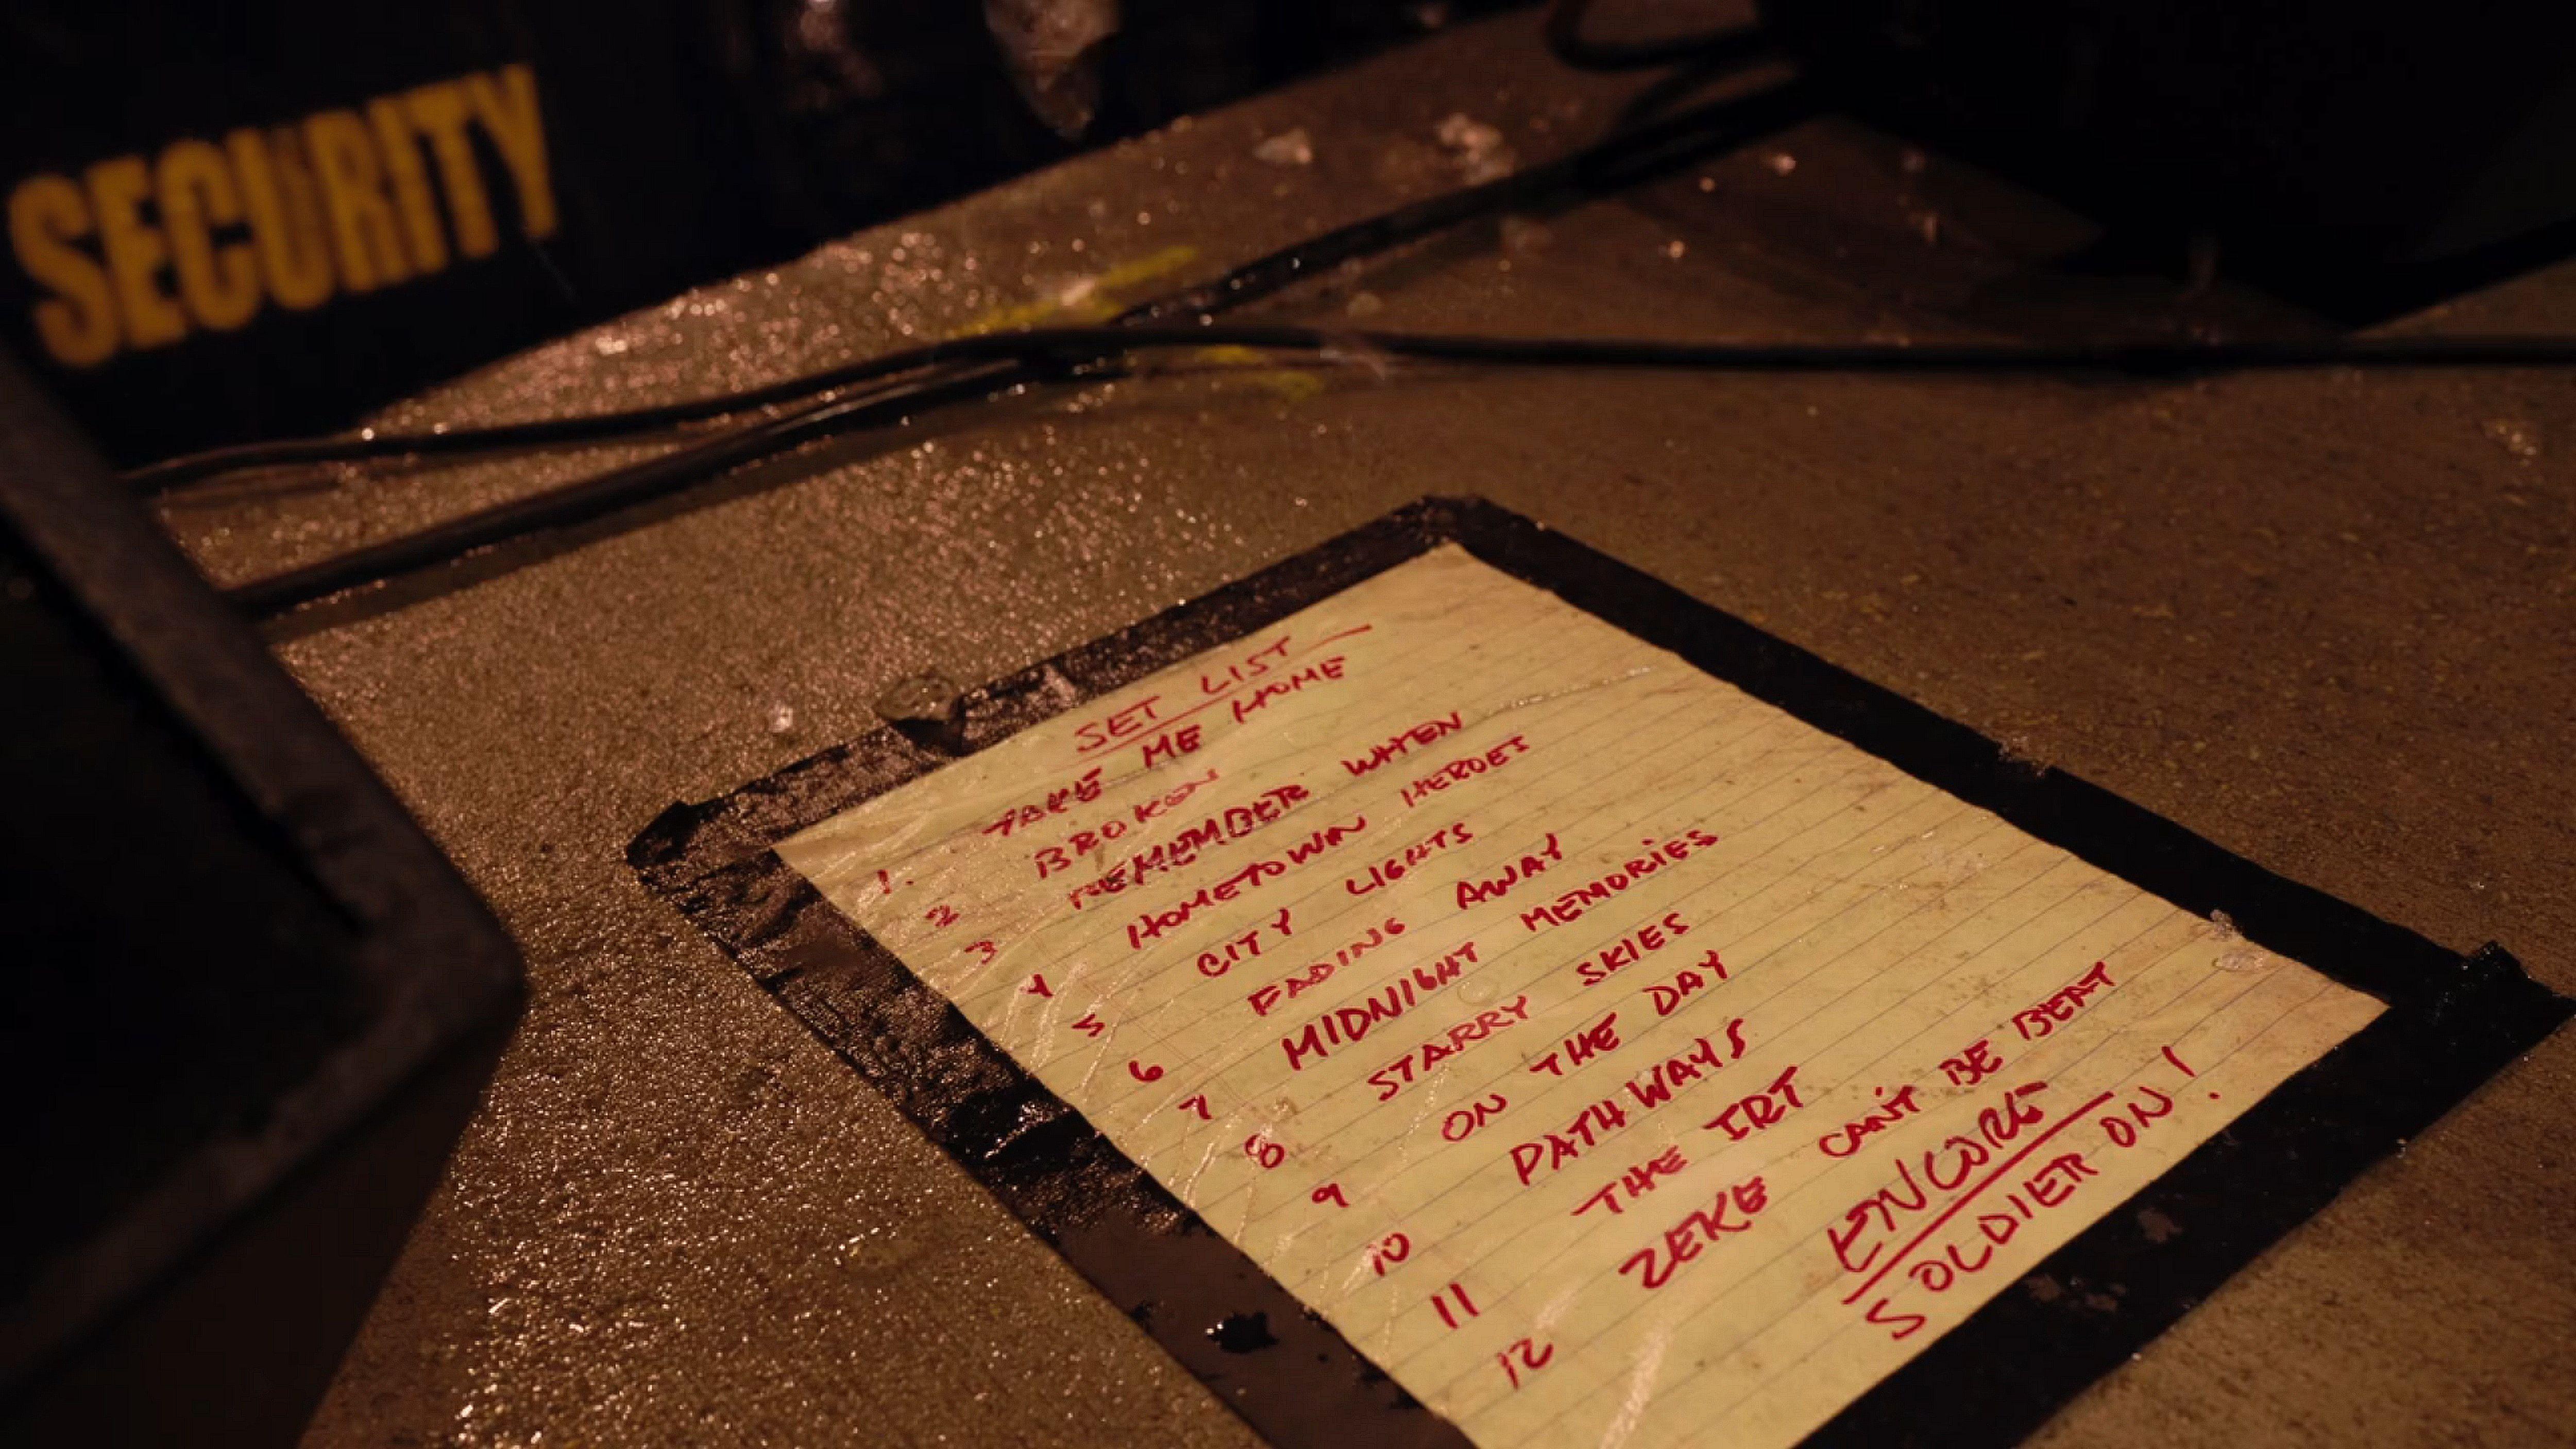 SECURITY
SET LIST
1. TAKE ME HOME
2 BROKEN
3 REMEMBER WHEN
4 HOMETOWN HEROES
5 CITY LIGHTS
6 FADING AWAY
7 MIDNIGHT MEMORIES
8 STARRY SKIES
9 ON THE DAY
10 PATHWAYS
11 THE IRT
12 ZEKE CAN'T BE BEAT
ENCORE
SOLDIER ON!